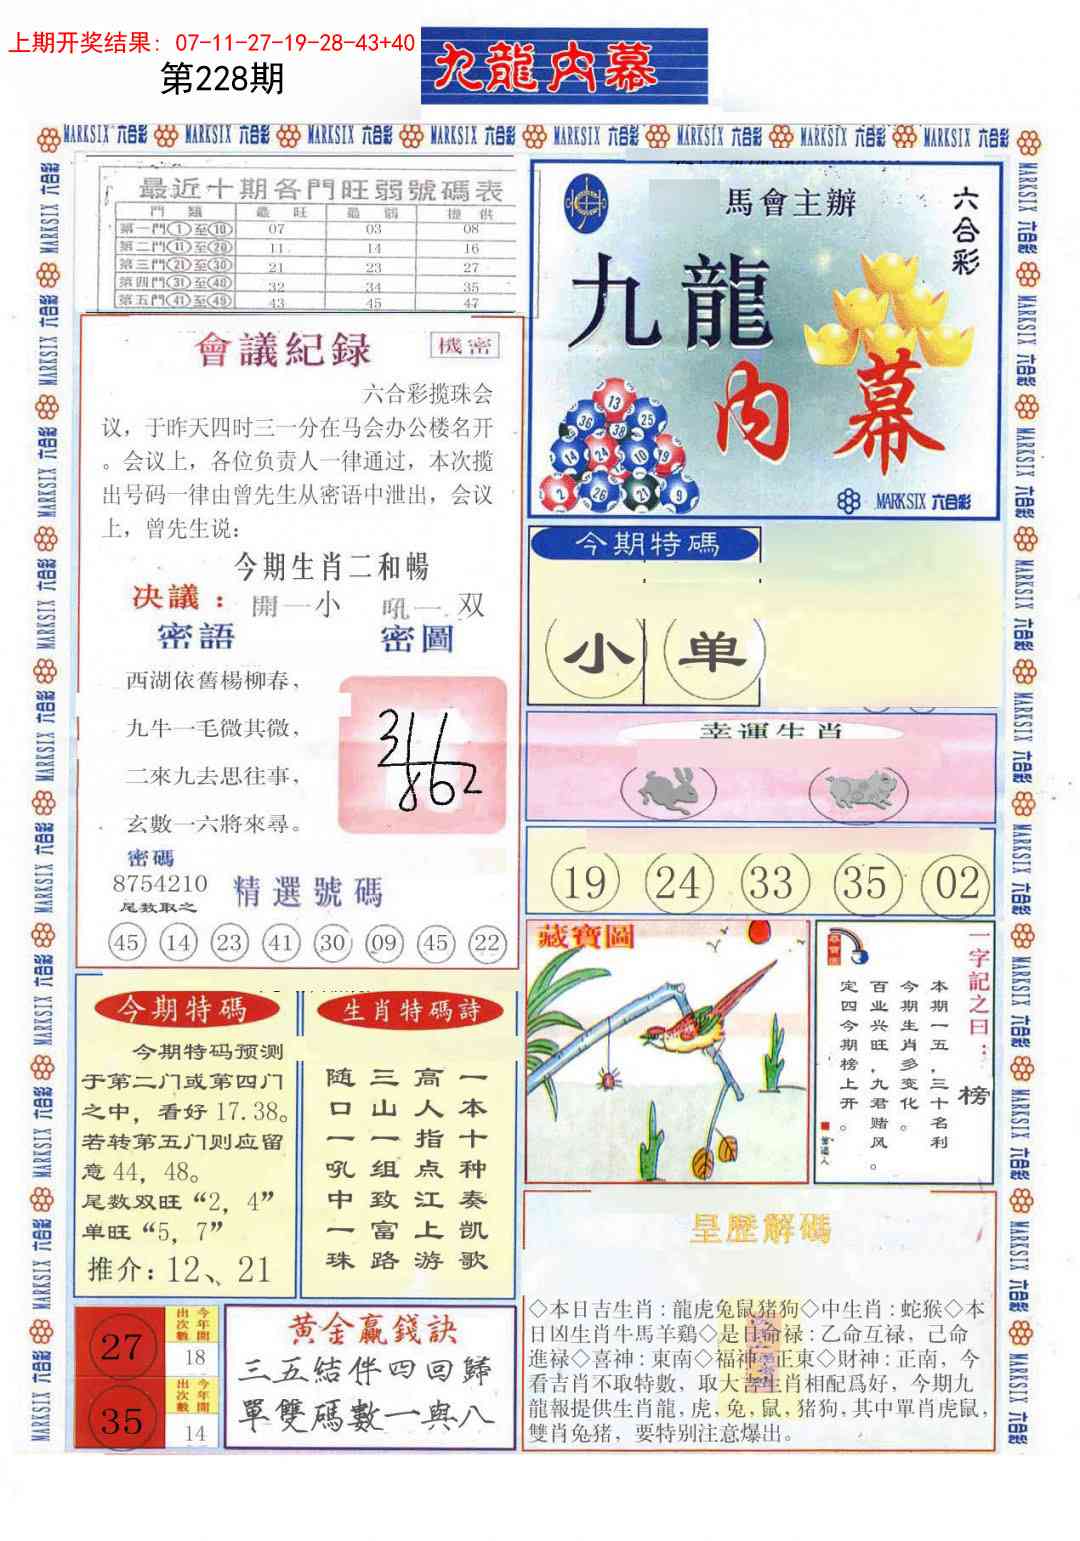 上期开奖结果：07-11-27-19-28-43+40
第228期
九龍内幕
MARKSIX 六合彩 MARKSIX 六合彩 MARKSIX 六合彩 MARKSIX 六合彩 MARKSIX 六合彩 MARKSIX 六合彩 MARKSIX 六合彩 MARKSIX 六合彩
最近十期各門旺弱號碼表
門類 最旺 最弱 提供
第一門①至⑩ 07 03 08
第二門⑪至⑳ 11 14 16
第三門㉑至㉚ 21 23 27
第四門㉛至㊵ 32 34 35
第五門㊶至㊾ 43 45 47
會議紀録
機密
六合彩揽珠会
议，于昨天四时三一分在马会办公楼名开
。会议上，各位负责人一律通过，本次揽
出号码一律由曾先生从密语中泄出，会议
上，曾先生说：
今期生肖二和暢
决議：開一小 吼一双
密語
密圖
西湖依舊楊柳春，
九牛一毛微其微，
二來九去思往事，
玄數一六將來尋。
密碼
8754210
尾数取之
精選號碼
45 14 23 41 30 09 45 22
馬會主辦
六合彩
九龍
内幕
13
36 38 25
14 24 10 19
2 26 21 9
MARKSIX 六合彩
今期特碼
小 单
幸運生肖
19 24 33 35 02
藏寶圖
一字記之曰：
榜
本期一五，三十名利
今期生肖多变化。
百业兴旺，九君赌风。
定四今期榜上开。
今期特碼
今期特码预测
于第二门或第四门
之中，看好17.38。
若转第五门则应留
意44，48。
尾数双旺“2，4”
单旺“5，7”
推介：12、21
生肖特碼詩
一本十种奏凯歌
高人指点江上游
三山一组致富路
随口一吼中一珠
27
今年開出次數
18
35
今年開出次數
14
黄金贏錢訣
三五結伴四回歸
單雙碼數一與八
皇歷解碼
◇本日吉生肖：龍虎兔鼠猪狗◇中生肖：蛇猴◇本
日凶生肖牛馬羊鷄◇是日命禄：乙命互禄，己命
進禄◇喜神：東南◇福神：正東◇財神：正南，今
看吉肖不取特數，取大吉生肖相配爲好，今期九
龍報提供生肖龍，虎，兔，鼠，猪狗，其中單肖虎鼠，
雙肖兔猪，要特别注意爆出。